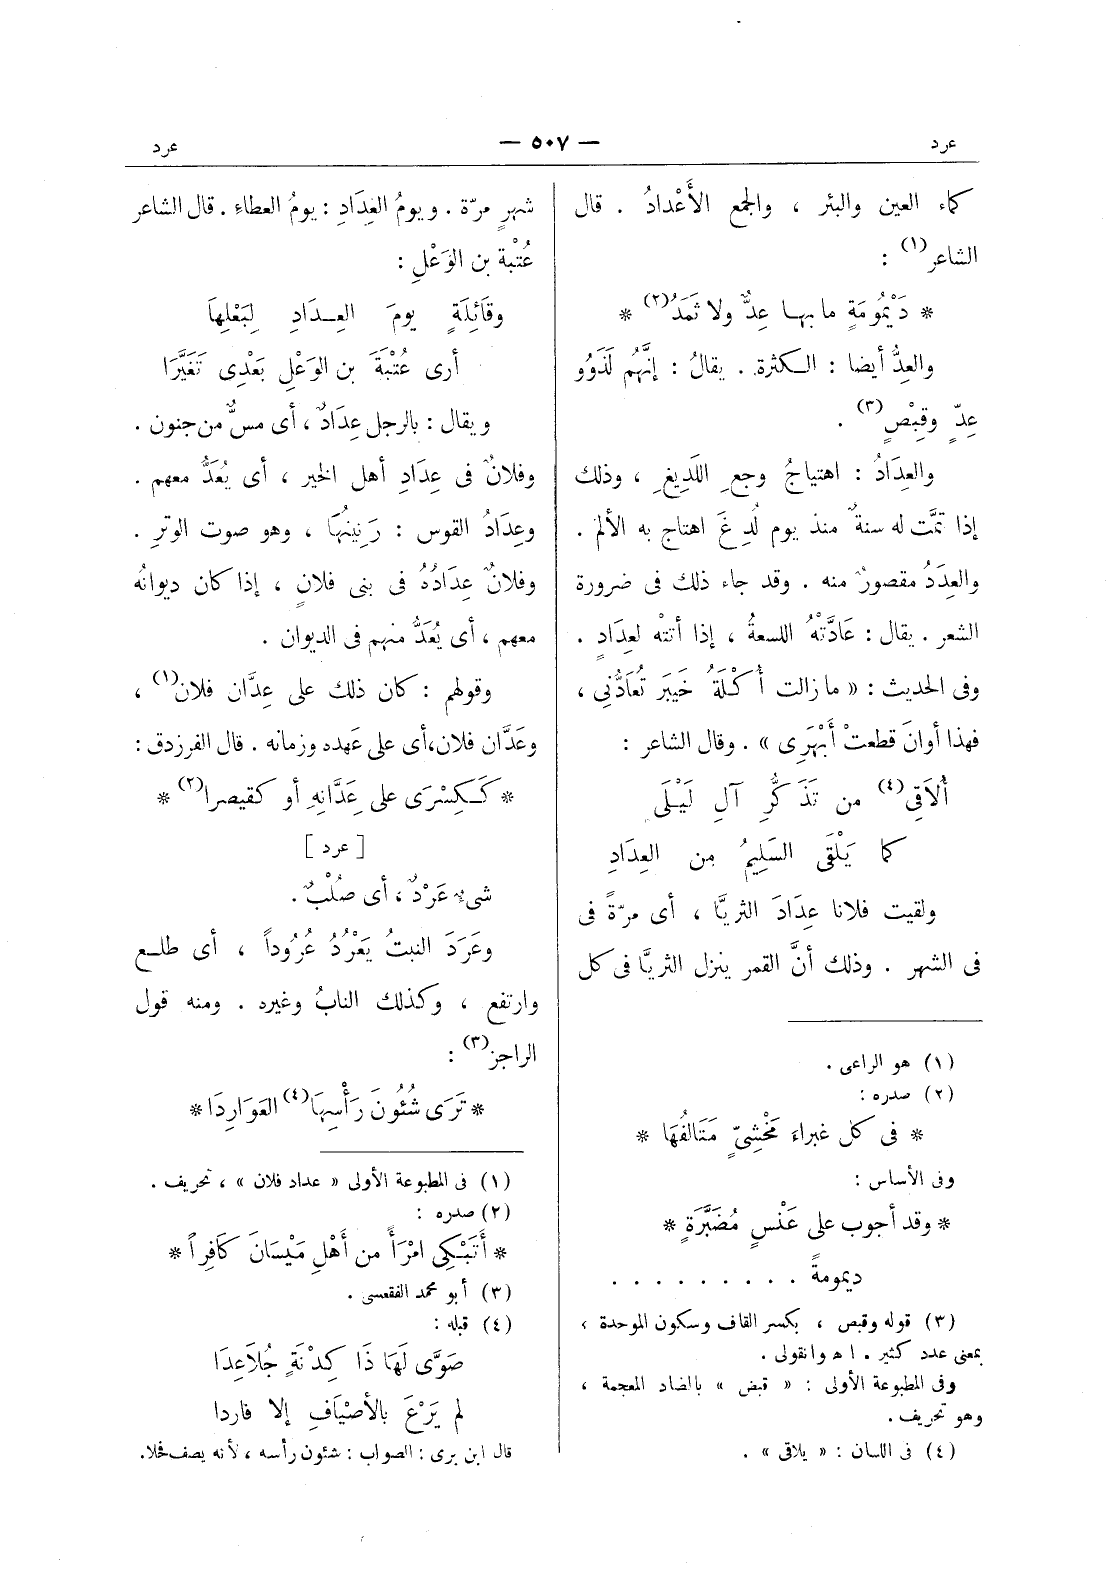 عرد — ٥٠٧ — عرد
كماء العين والبئر ، والجمع الأَعْدادُ . قال
الشاعر(١) :
* دَيْمُومَةٍ ما بهــا عِدٌّ ولا ثَمَدُ(٢) *
والعِدُّ أيضا : الــكثرة . يقالُ : إنَّهُم لَذَوُو
عِدٍّ وقِبْصٍ(٣) .
والعِدَادُ : اهتياجُ وجعِ اللَدِيغِ ، وذلك
إذا تمَّت له سنةٌ منذ يوم لُدِغَ اهتاج به الألم .
والعِدَدُ مقصورٌ منه . وقد جاء ذلك فى ضرورة
الشعر . يقال : عَادَّتْهُ اللسعةُ ، إذا أتتْه لعِدَادٍ .
وفى الحديث : « ما زالت أُكْلَةُ خَيبَر تُعَادُّنِي ،
فهذا أوانَ قطعتْ أَبْهَرِى » . وقال الشاعر :
أُلَاقِى(٤) من تَذَكُّرِ آلِ لَيْلَى
كما يَلْقَى السَلِيمُ من العِدَادِ
ولقيت فلانا عِدَادَ الثريَّا ، أى مرّةً فى
فى الشهر . وذلك أنَّ القمر ينزل الثريَّا فى كل
(١) هو الراعى .
(٢) صدره :
* فى كل غبراءَ مَخْشِىٍّ مَتَالفُهَا *
وفى الأساس :
* وقد أجوب على عَنْسٍ مُضَبَّرَةٍ *
ديمومةً . . . . . . . . .
(٣) قوله وقبص ، بكسر القاف وسكون الموحدة ،
بمعنى عدد كثير . ا ه وانقولى .
وفى المطبوعة الأولى : « قبض » بالضاد المعجمة ،
وهو تحريف .
(٤) فى اللسان : « يلاقى » .
شهرٍ مرّة . ويومُ العِدَادِ : يومُ العطاءِ . قال الشاعر
عُتْبة بن الوَعْلِ :
وقَائِلَةٍ يومَ العِــدَادِ لِبَعْلِهَا
أرى عُتْبَةَ بن الوَعْلِ بَعْدِى تَغَيَّرَا
ويقال : بالرجل عِدَادٌ ، أى مسٌّ من جنون .
وفلانٌ فى عِدَادِ أهل الخير ، أى يُعَدُّ معهم .
وعِدَادُ القوس : رَنِينُهَا ، وهو صوت الوترِ .
وفلانٌ عِدَادُهُ فى بنى فلانٍ ، إذا كان ديوانُه
معهم ، أى يُعَدُّ منهم فى الديوان .
وقولهم : كان ذلك على عِدَّان فلان(١) ،
وعَدَّان فلان، أى على عَهده وزمانه . قال الفرزدق :
* كَــكِسْرَى على عِدَّانِهِ أو كقيصرا(٢) *
[ عرد ]
شىءٌ عَرْدٌ ، أى صُلْبٌ .
وعَرَدَ النبتُ يَعْرُدُ عُرُوداً ، أى طلــع
وارتفع ، وكذلك النابُ وغيره . ومنه قول
الراجز(٣) :
* تَرَى شُئُونَ رَأْسِهَا(٤) العَوَارِدَا *
(١) فى المطبوعة الأولى « عداد فلان » ، تحريف .
(٢) صدره :
* أَتَبْكِى امْرَأً من أَهْلِ مَيْسَانَ كَافِراً *
(٣) أبو محمد الفقعسى .
(٤) قبله :
صَوَّى لَهَا ذَا كِدْنَةٍ جُلَاعِدَا
لم يَرْعَ بالأصْيَافِ إلا فاردا
قال ابن برى : الصواب : شئون رأسه ، لأنه يصف فحلا.